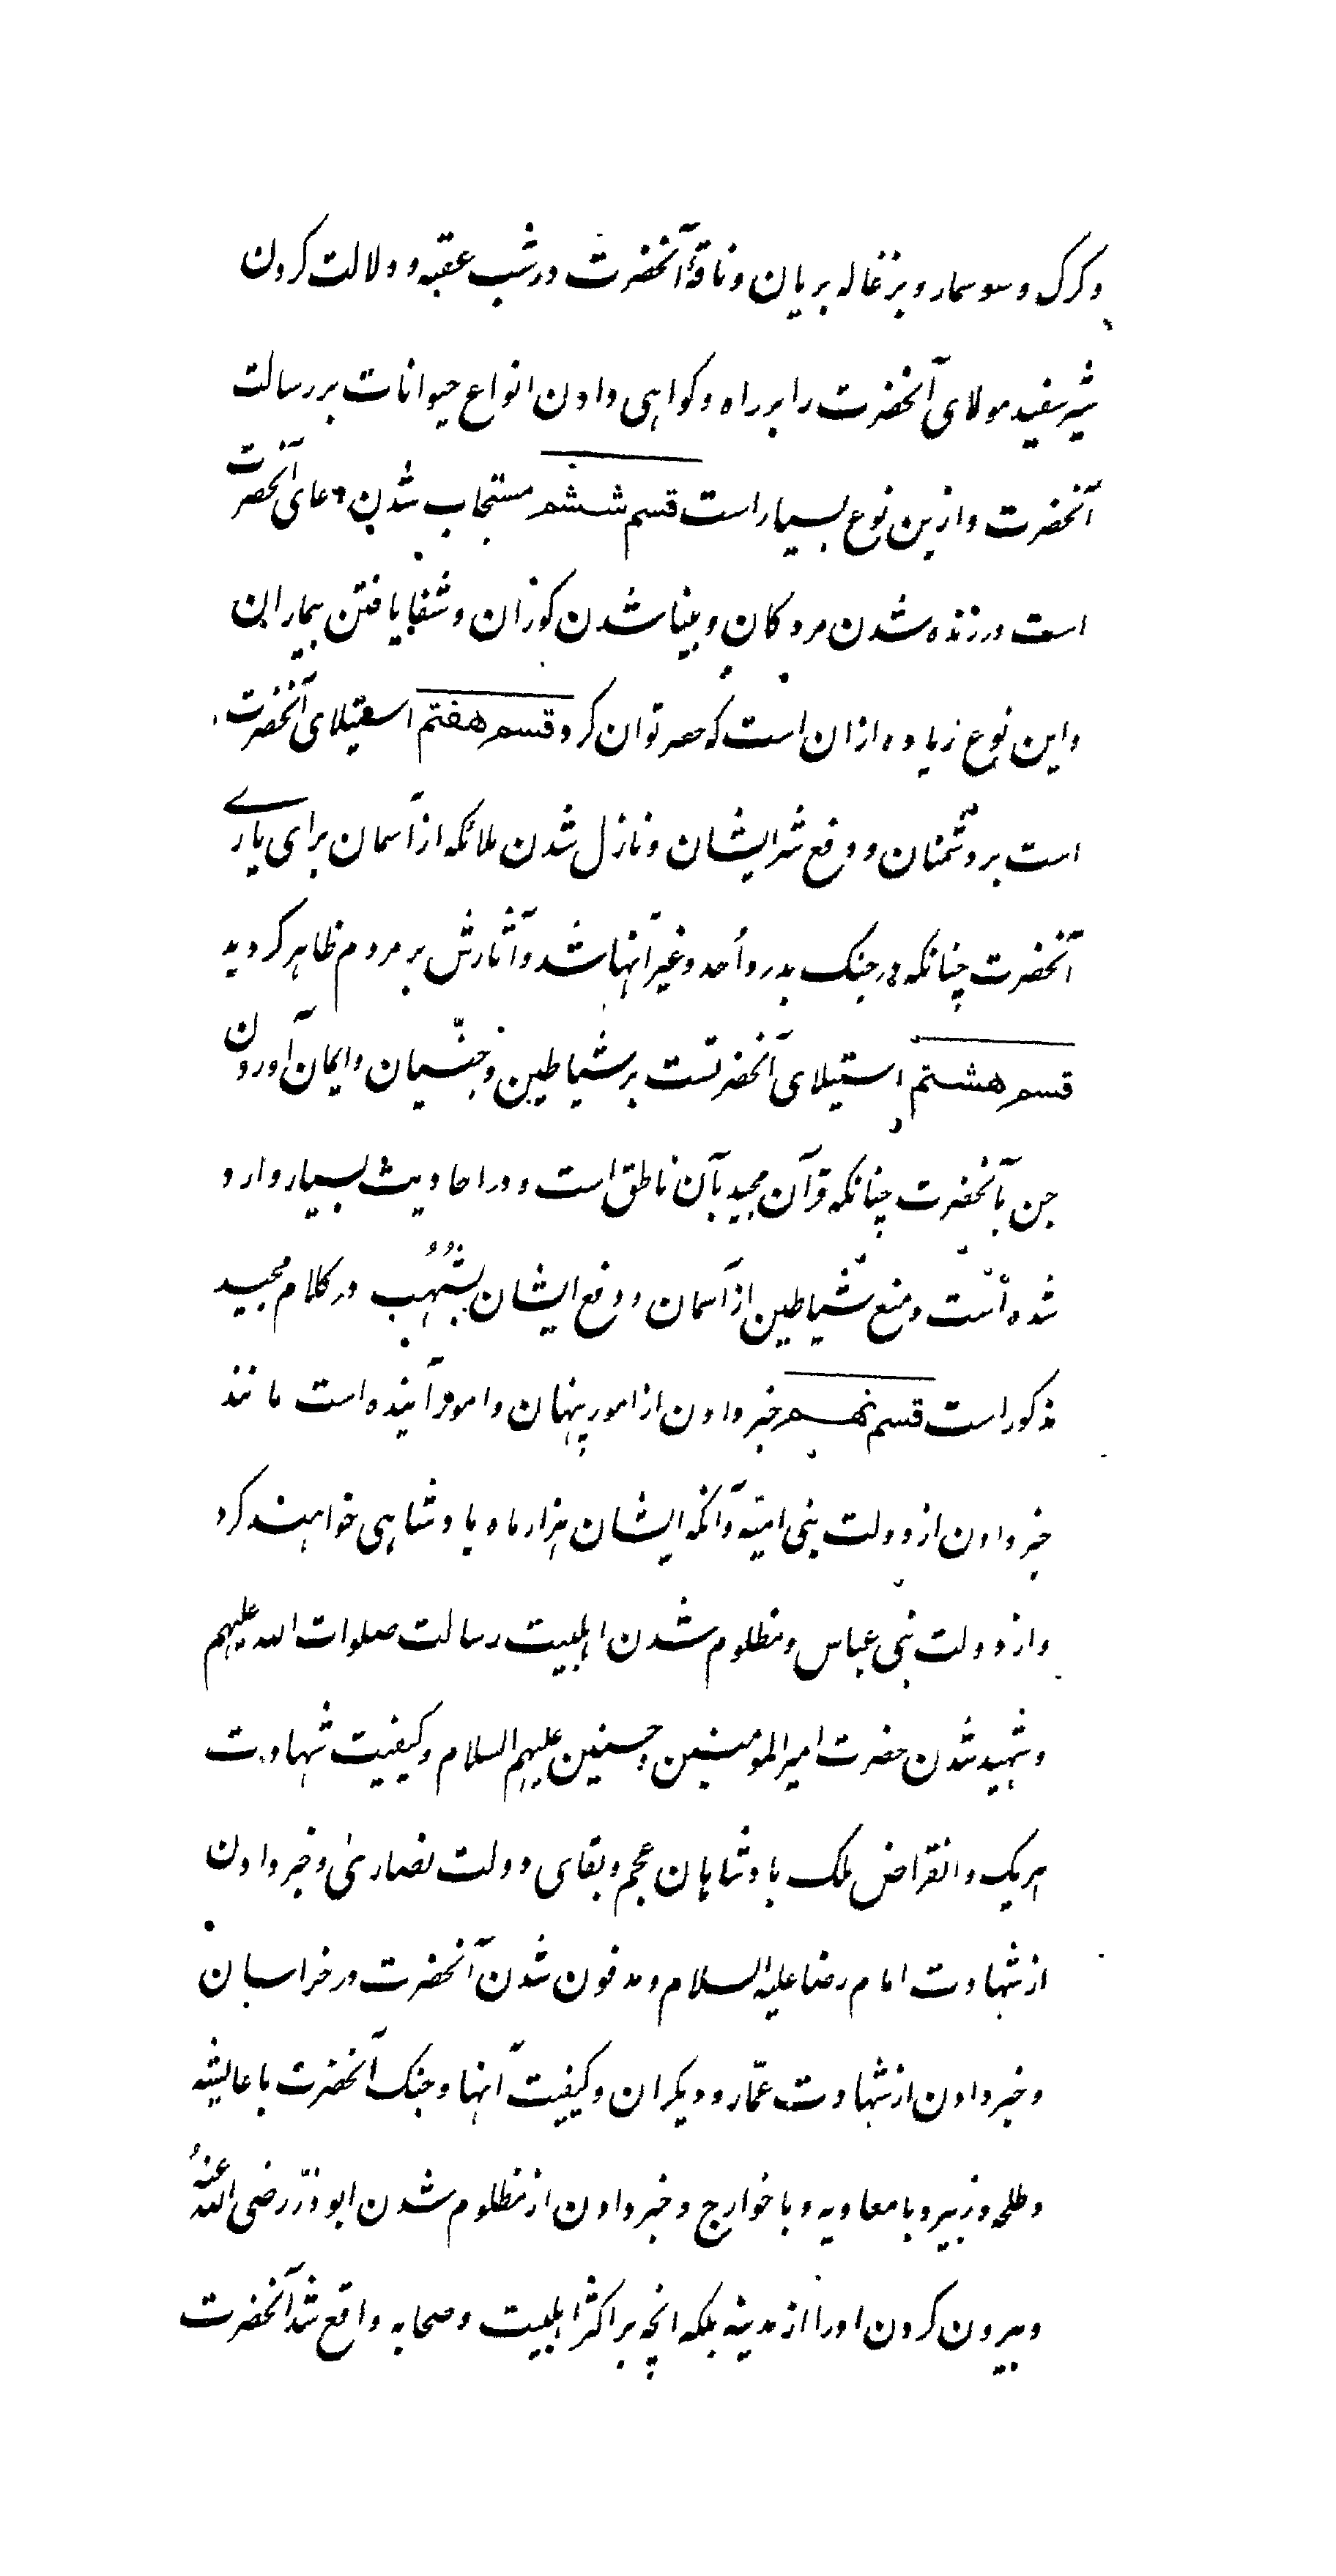 و کرک و سوسمار و بزغاله بریان و ناقهٔ آنحضرت در شب عقبه و دلالت کردن
شیر سفید مولای آنحضرت را بر راه و کواهی دادن انواع حیوانات بر رسالت
آنحضرت و ازین نوع بسیار است قسم ششم مستجاب شدن دعای آنحضرت
است در زنده شدن مردکان و بینا شدن کوران و شفا یافتن بیماران
و این نوع زیاده ازان است که حصر توان کرد قسم هفتم استیلای آنحضرت
است بر دشمنان و دفع شر ایشان و نازل شدن ملائکه از آسمان برای یاری
آنحضرت چنانکه در جنک بدر و اُحد و غیر آنها شد و آثارش بر مردم ظاهر کردید
قسم هشتم استیلای آنحضرتست بر شیاطین و جنّیان و ایمان آوردن
جن بآنحضرت چنانکه قرآن مجید بآن ناطق است و در احادیث بسیار وارد
شده است و منع شیاطین از آسمان و دفع ایشان بشُهُب در کلام مجید
مذکور است قسم نهم خبر دادن از امور پنهان و امور آینده است مانند
خبر دادن از دولت بنی امیّه و آنکه ایشان هزار ماه پادشاهی خواهند کرد
و از دولت بنی عباس و مظلوم شدن اهلبیت رسالت صلوات الله علیهم
و شهید شدن حضرت امیرالمومنین و حسنین علیهم السلام و کیفیت شهادت
هریک و انقراض ملک پادشاهان عجم و بقای دولت نصاریٰ و خبر دادن
از شهادت امام رضا علیه السلام و مدفون شدن آنحضرت در خراسان
و خبر دادن از شهادت عمّار و دیکران و کیفیت آنها و جنک آنحضرت با عایشه
و طلحه و زبیر و با معاویه و با خوارج و خبر دادن از مظلوم شدن ابوذرّ رضی الله عنهُ
و بیرون کردن او را از مدینه بلکه انچه بر اکثر اهلبیت و صحابه واقع شد آنحضرت